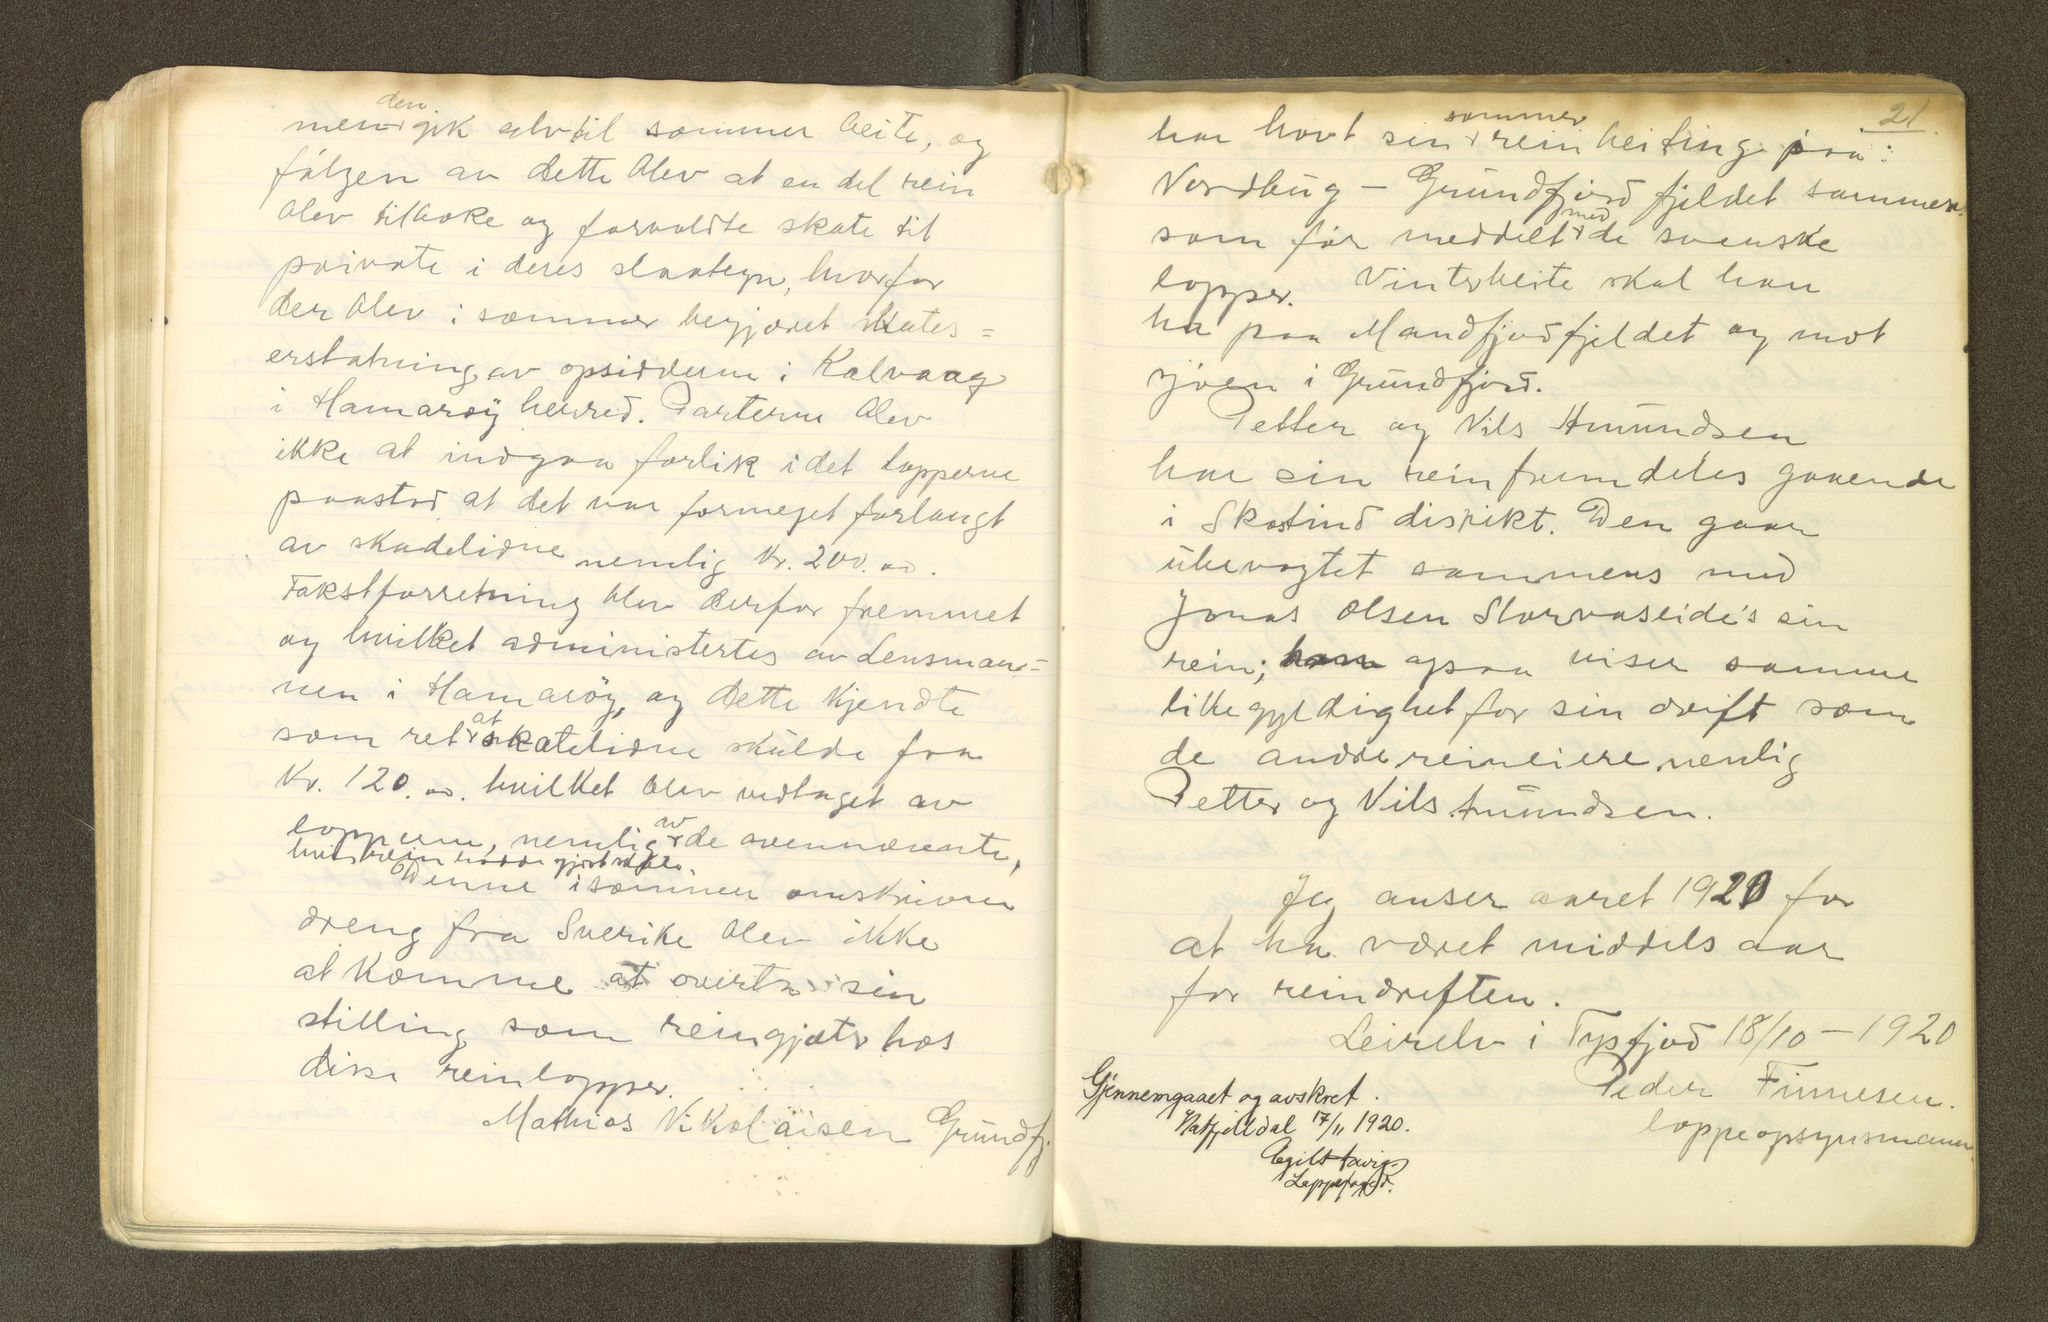 men den gik selv til sommer beite, og
følgen av dette blev at en del rein
blev tilbake og forvoldte skate til
private i deres slaategn, hvorfor
der blev i sommer begjæret skates=
erstatning av opsidderne i Kalvaag
i Hamarøy herred. Parterne blev
ikke at indgaa forlik idet lapperne
paastod at det var formeget forlangt
av skadelidne nemlig kr. 200.00.
Takstforretning blev derfor fremmet
og hvilket administertes av Lensman=
nen i Hamarøy, og dette kjendte
som ret at skatelidne skulde faa
Kr. 120.00. hvilket blev vedtaget av
lapperne, nemlig av de svennævnte,
hvis rein hadde gjort skade.
Denne i sommer omskrivne
dreng fra Sverike blev ikke
at komme at overta sin
stilling som reingjæter hos
disse reinlapper.
Mathias Nikolaisen Grundfj.
21.
har havt sin sommer reinbeiting paa:
Nordbug - Grundfjord fjeldet sammen
som før meddelt med de svenske
lapper. Vinterbeite skal han
ha paa Mandfjordfjeldet og mot
sjøen i Grundfjord.
Petter og Nils Amundsen
har sin rein fremdeles gaaende
i Skotind distrikt. Den gaar
ubevogtet sammens med
Jonas Olsen Storvaseide's sin
rein; han ogsaa viser samme
likegyldighet for sin drift som
de andre reineiere nemlig
Petter og Nils Amundsen.
Jeg anser aaret 1920 for
at ha været middels aar
for reindriften.
Leirelv i Tysfjord 18/10 - 1920
Peder Finnesen.
lappeopsynsmann
Gjennemgaaet og avskret.
Hatfjelldal 17/11 1920.
Lappefoged.